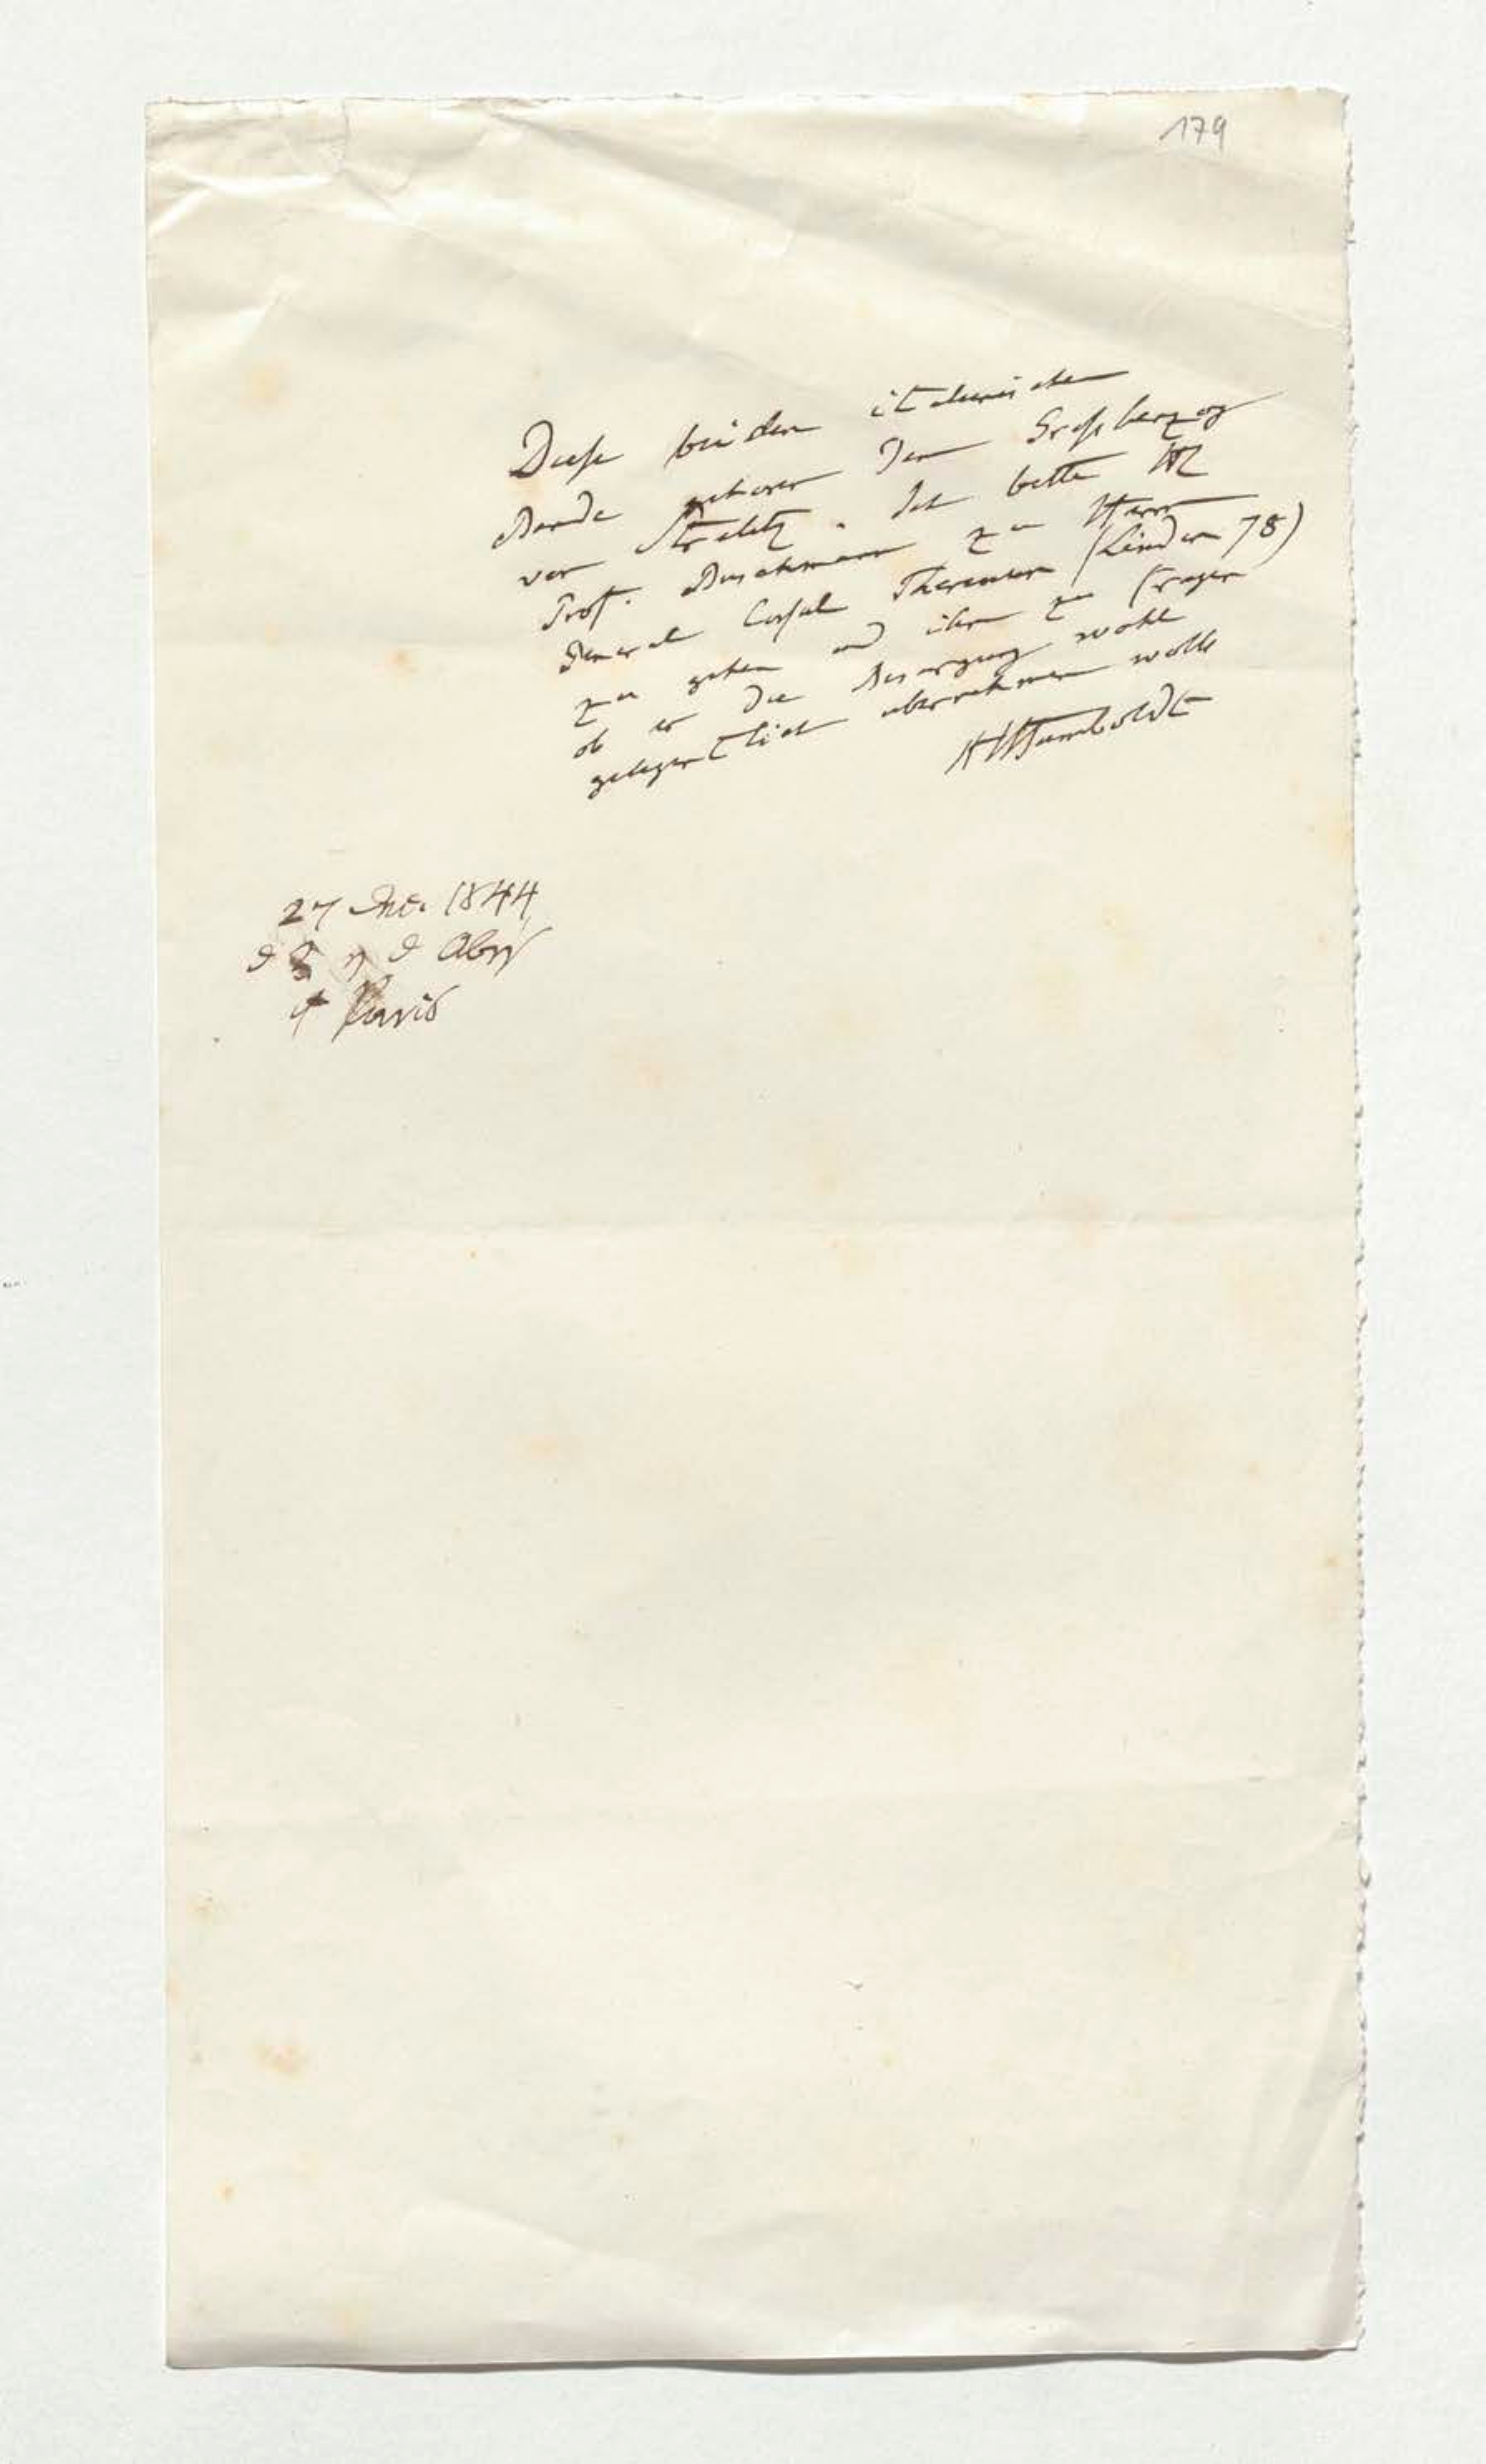 179
Diese beiden italienischen
Bände gehören dem Grosherzog
von Strelitz. Ich bitte H
Prof. Buschmann zu Herrn
General Consul Theremin (Linden 78)
zu gehen und ihn zu fragen
ob er die Besorgung wohl
gelegentlich übernehmen wolle
AHumboldt
27 Dec. 1844,
Paris